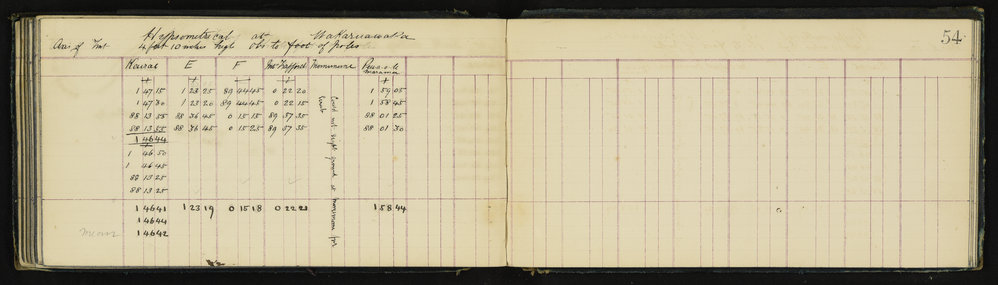 Hypsometrical at Wakaruawaka
Axis of Inst 4 feet 10 inches high obs to foot of poles
54
E F Mt Trafford
+ + + + +
1 47 15 1 23 25 89 44 45 0 22 20 1 59 05
1 47 30 1 23 20 89 44 45 0 22 15 1 58 45
88 13 55 88 36 45 0 15 15 89 37 35 88 01 25
88 13 55 88 36 45 0 15 25 89 37 35 88 01 30
1 46 44
1 46 50
1 46 45
88 13 25
88 13 25
1 46 41 1 23 19 0 15 18 0 22 21 1 58 44
1 46 44
mean 1 46 42
Could not sight ground at for